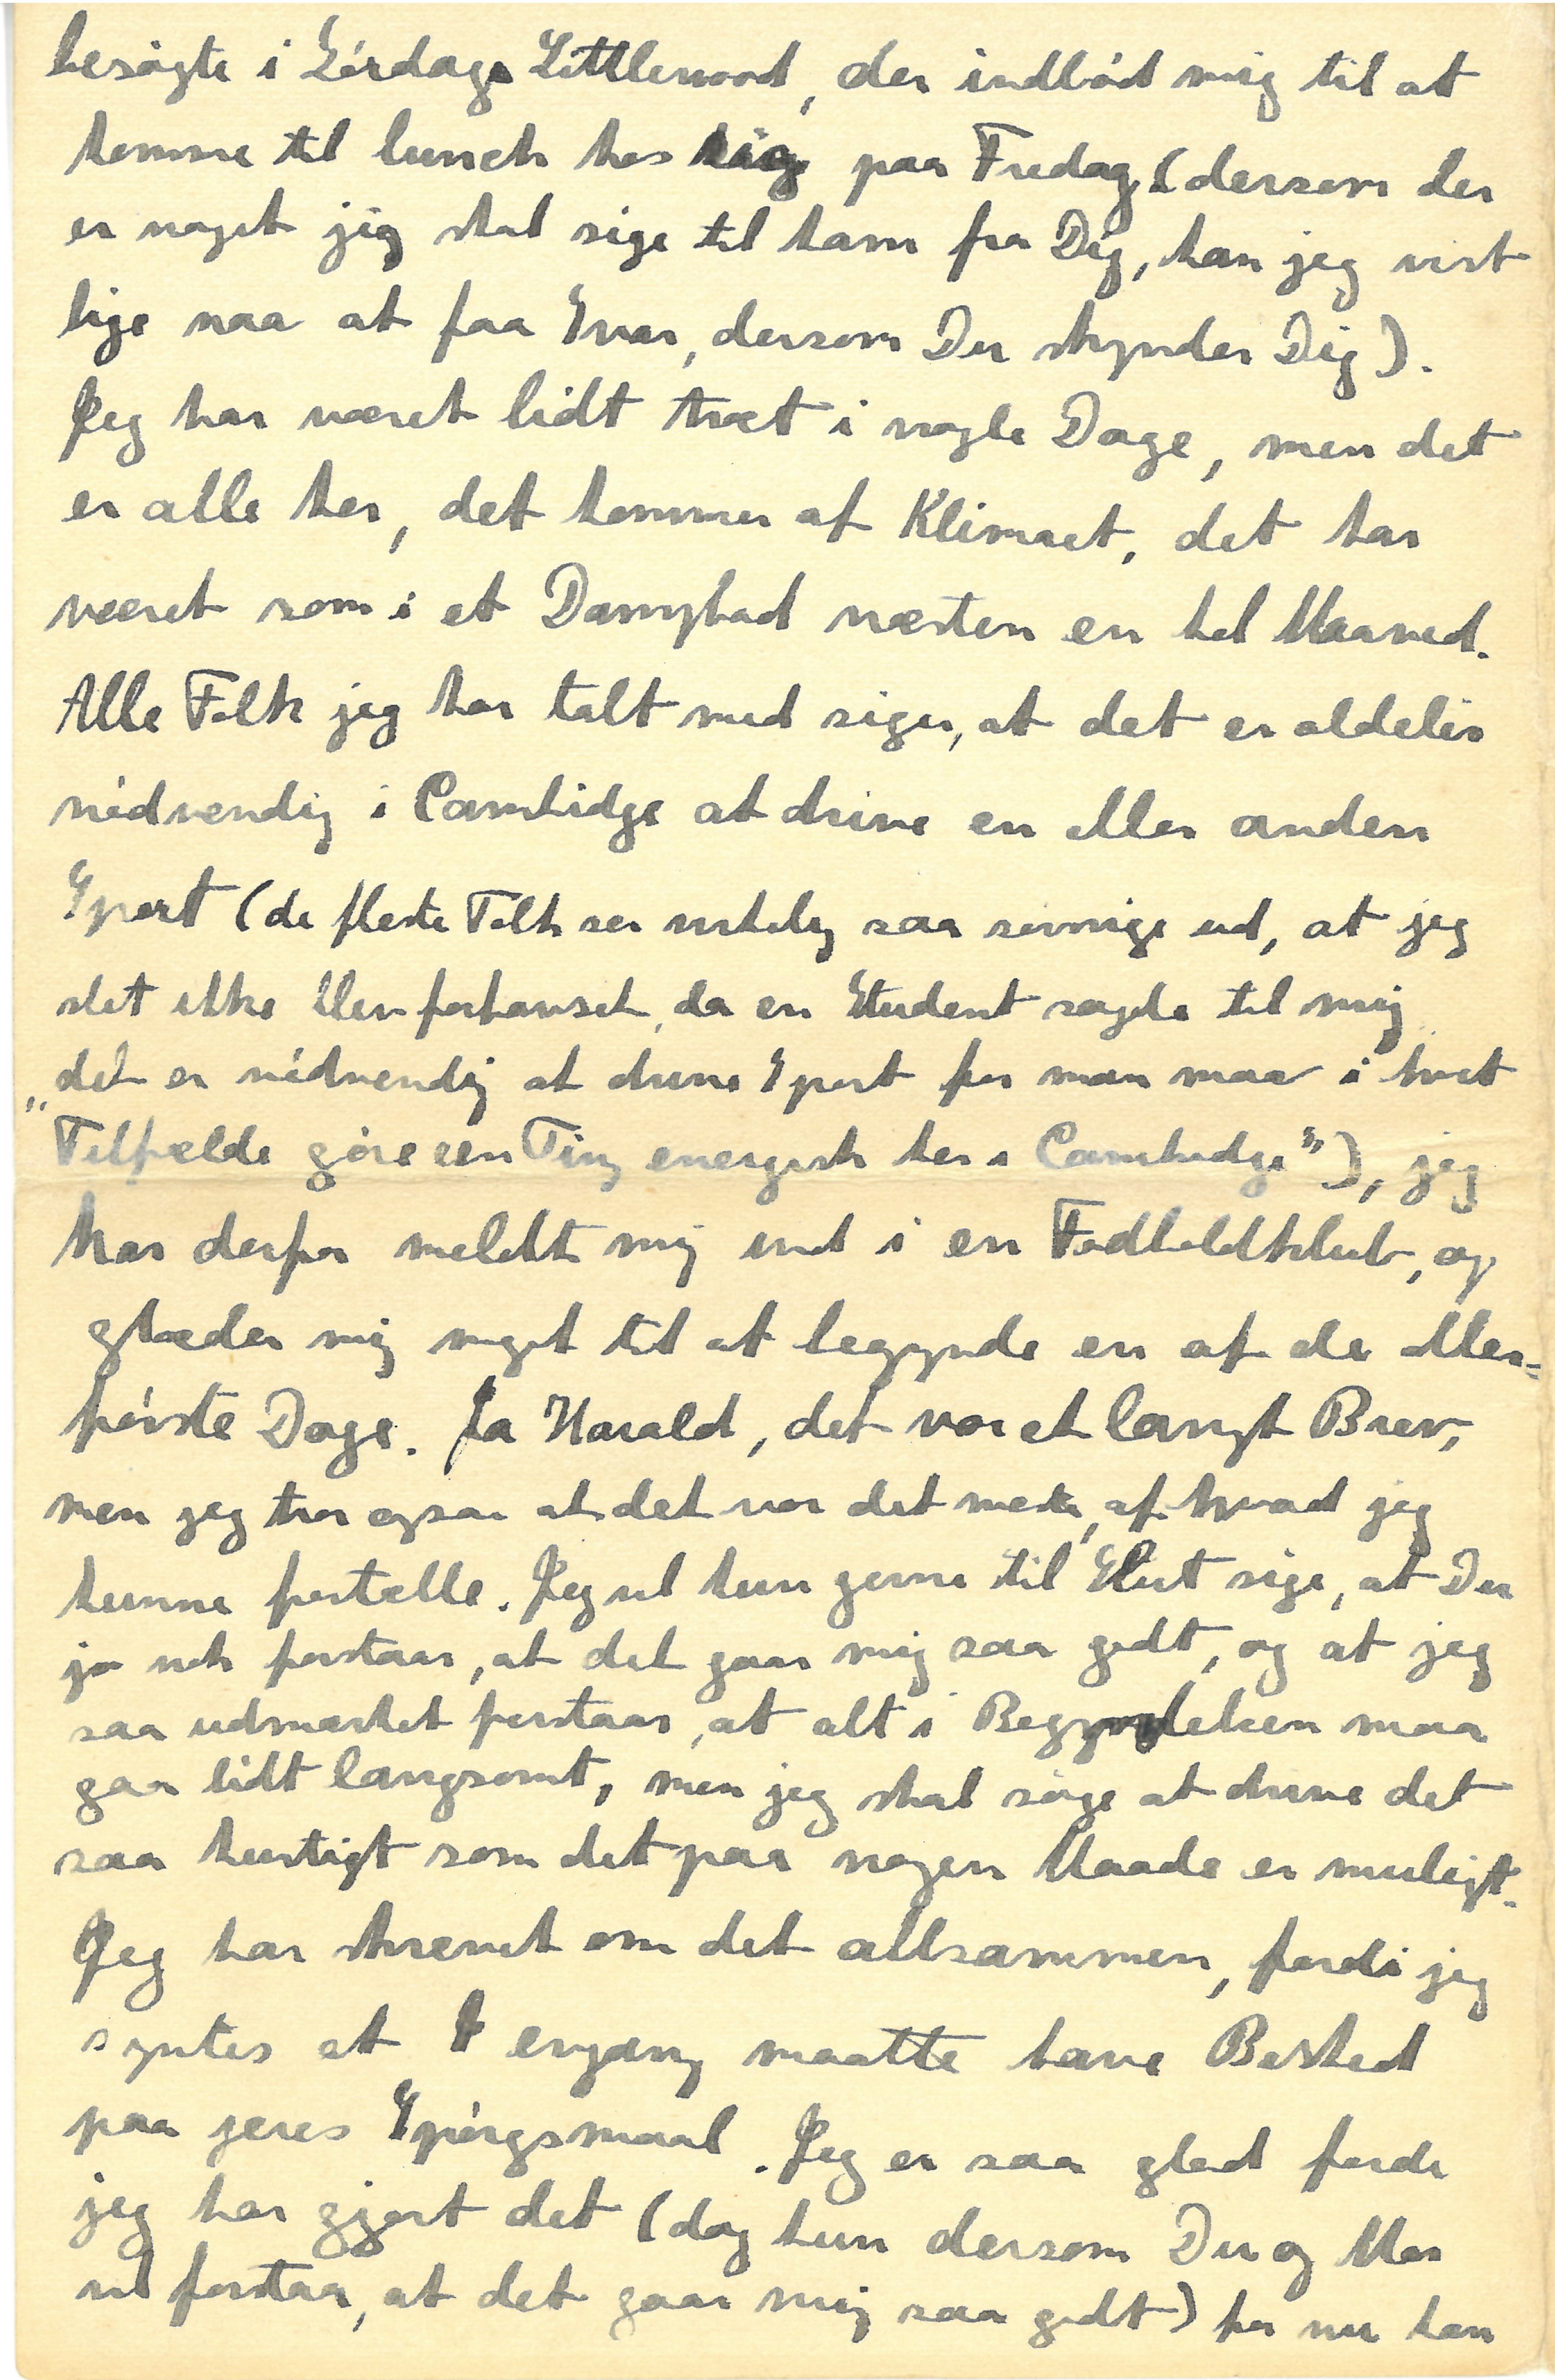 besøgte i Lørdags Littlewood, der indbød mig til at
komme til lunch hos sig paa Fredag (dersom der
er noget jeg skal sige til ham fra Dig, kan jeg vist
lige naa at faa Svar, dersom Du skynder Dig).
Jeg har været lidt træt i nogle Dage, men det
er alle her, det kommer af Klimaet, det har
været som i et Dampbad næsten en hel Maaned.
Alle Folk jeg har talt med siger, at det er aldeles
nødvendig i Cambidge at drive en eller anden
Sport (de fleste Folk ser virkelig saa søvnige ud, at jeg
slet ikke blev forbauset, da en Student sagde til mig
„det er nødvendig at drive Sport for man maa i hvert
Tilfælde gøre een Ting energisk her i Cambridge”), jeg
har derfor meldt mig ind i en Fodboldklub, og
glæder mig meget til at begynde en af de aller-
første Dage. Ja Harald, det var et langt Brev,
men jeg tror ogsaa at det var det meste, af hvad jeg
kunne fortælle. Jeg vil kun gerne til Slut sige, at Du
jo nok forstaar, at det gaar mig saa godt, og at jeg
saa udmærket forstaar, at alt i Begyndelsen maa
gaa lidt langsomt, men jeg skal søge at drive det
saa hurtigt som det paa nogen Maade er muligt.
Jeg har skrevet om det allsammen, fordi jeg
syntes at I engang maatte have Besked
paa jeres Spørgsmaal. Jeg er saa glad fordi
jeg har gjort det (dog kun dersom Du og Mor
vil forstaa, at det gaar mig saa godt) for nu kan